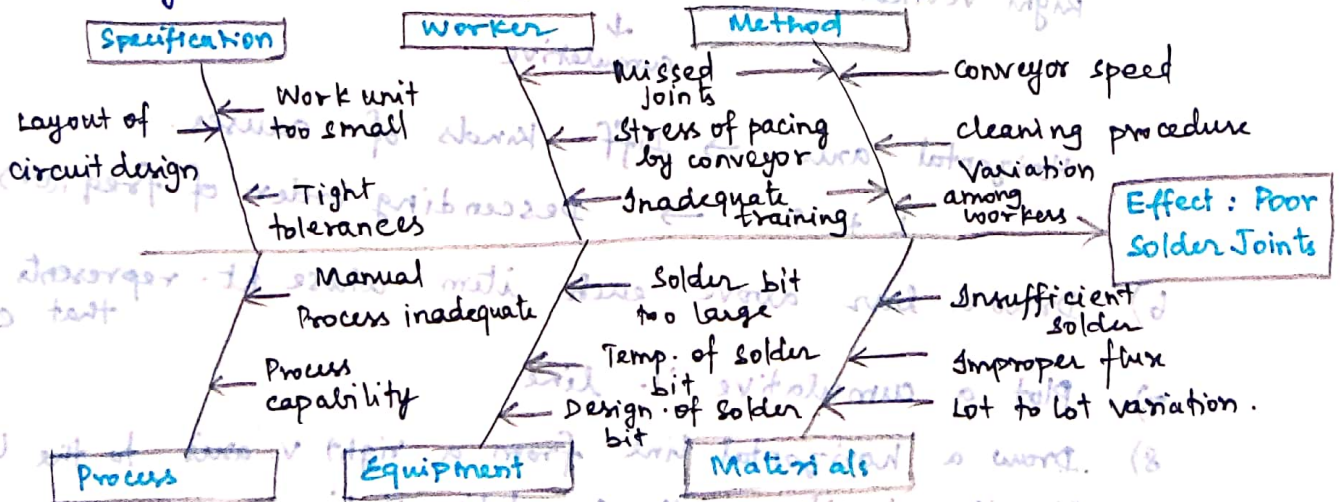 Specification
Worker
Method
Layout of
circuit design
Work unit
too small
Tight
tolerances
Missed
joints
Stress of pacing
by conveyor
Inadequate
training
conveyor speed
cleaning procedure
Variation
among
workers
Effect : Poor
Solder Joints
Manual
Process inadequate
Process
capability
Solder bit
too large
Temp. of solder
bit
Design. of solder
bit
Insufficient
solder
Improper flux
Lot to lot variation.
Process
Equipment
Materials